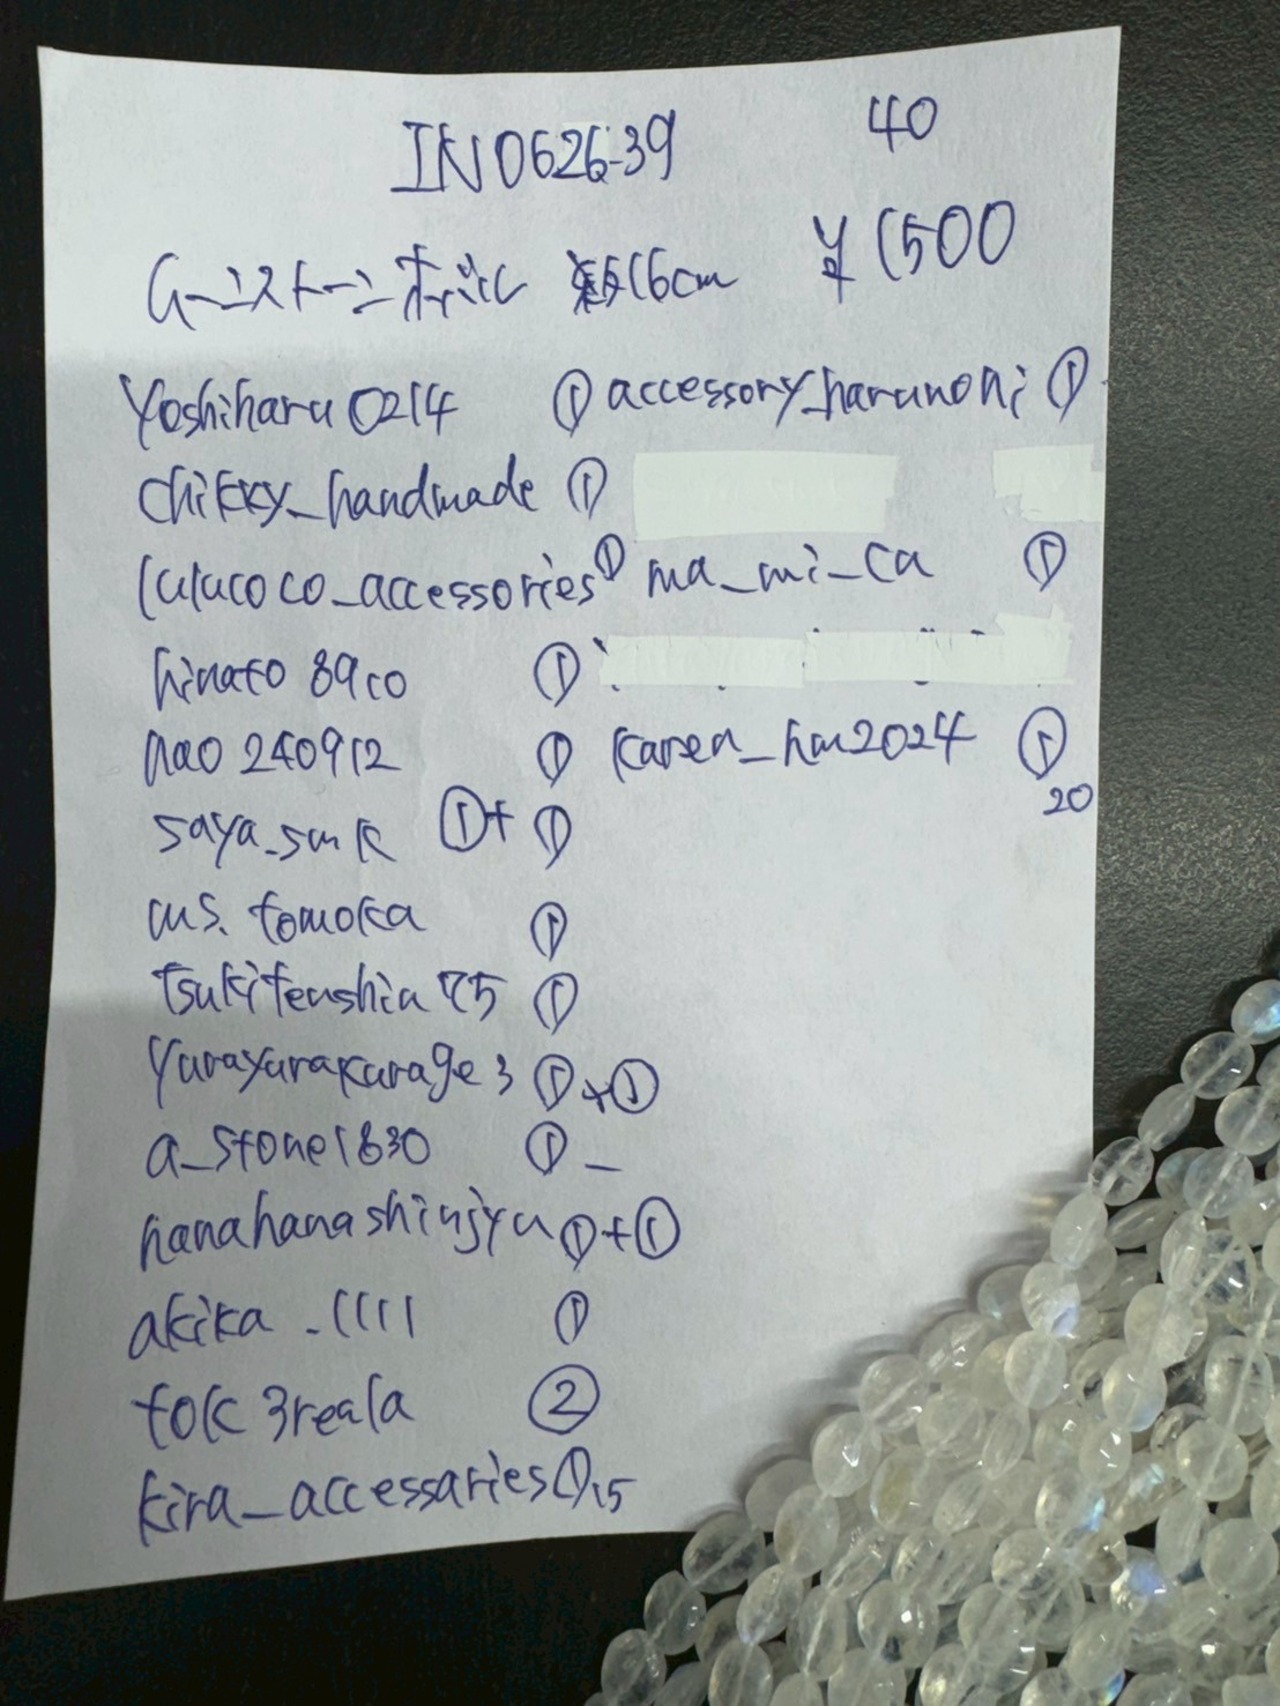 IN0626-39 40
ムーンストーン ボタンカット 約16cm ¥1500
Yoshiharu0214 ① accessory_harunoni ①
chikky_handmade ①
lulucoco_accessories ① ma_mi_ca ①
hinato8910 ①
nao240912 ① karen_hm2024 ①
20
saya_smk ①+①
ms.tomoka ①
tsukitenshia75 ①
yurayurakurage3 ①+①
a_stone1830 ①
hanahanashinjyu ①+①
akika_1111 ①
tok3reala ②
kira_accessaries ① 15